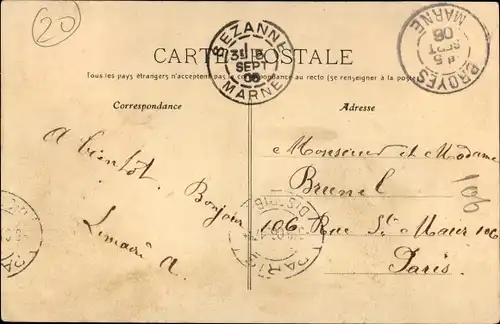 20
CARTE POSTALE
Tous les pays étrangers n'acceptent pas la correspondance au recto (se renseigner à la poste)
SEZANNE
SEPT
06
MARNE
BROYES
5
SEPT
06
MARNE
Correspondance
Adresse
A bientôt. Bonjour
Lemaire A.
Monsieur et Madame
Brunel
106 Rue St. Maur 106
Paris.
106
PARIS
DISTRIB